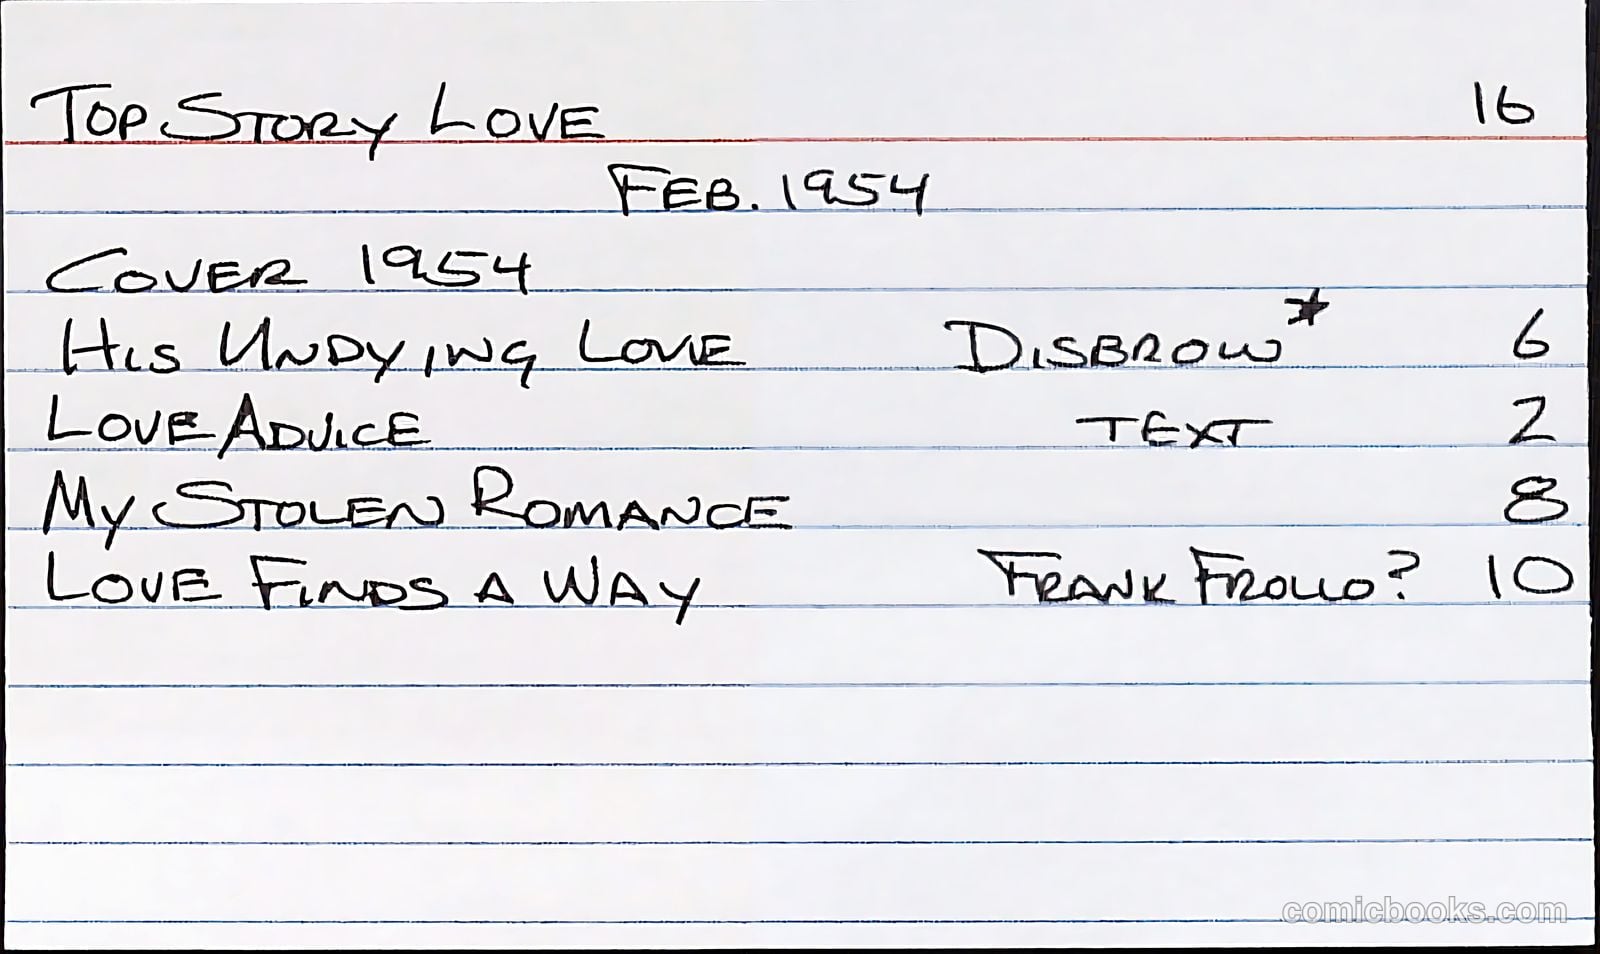 TOP STORY LOVE 16
FEB. 1954
COVER 1954
HIS UNDYING LOVE DISBROW* 6
LOVE ADVICE TEXT 2
MY STOLEN ROMANCE 8
LOVE FINDS A WAY FRANK FROLLO? 10
comicbooks.com